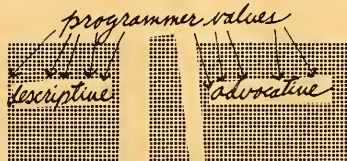 programmer values
descriptive advocative